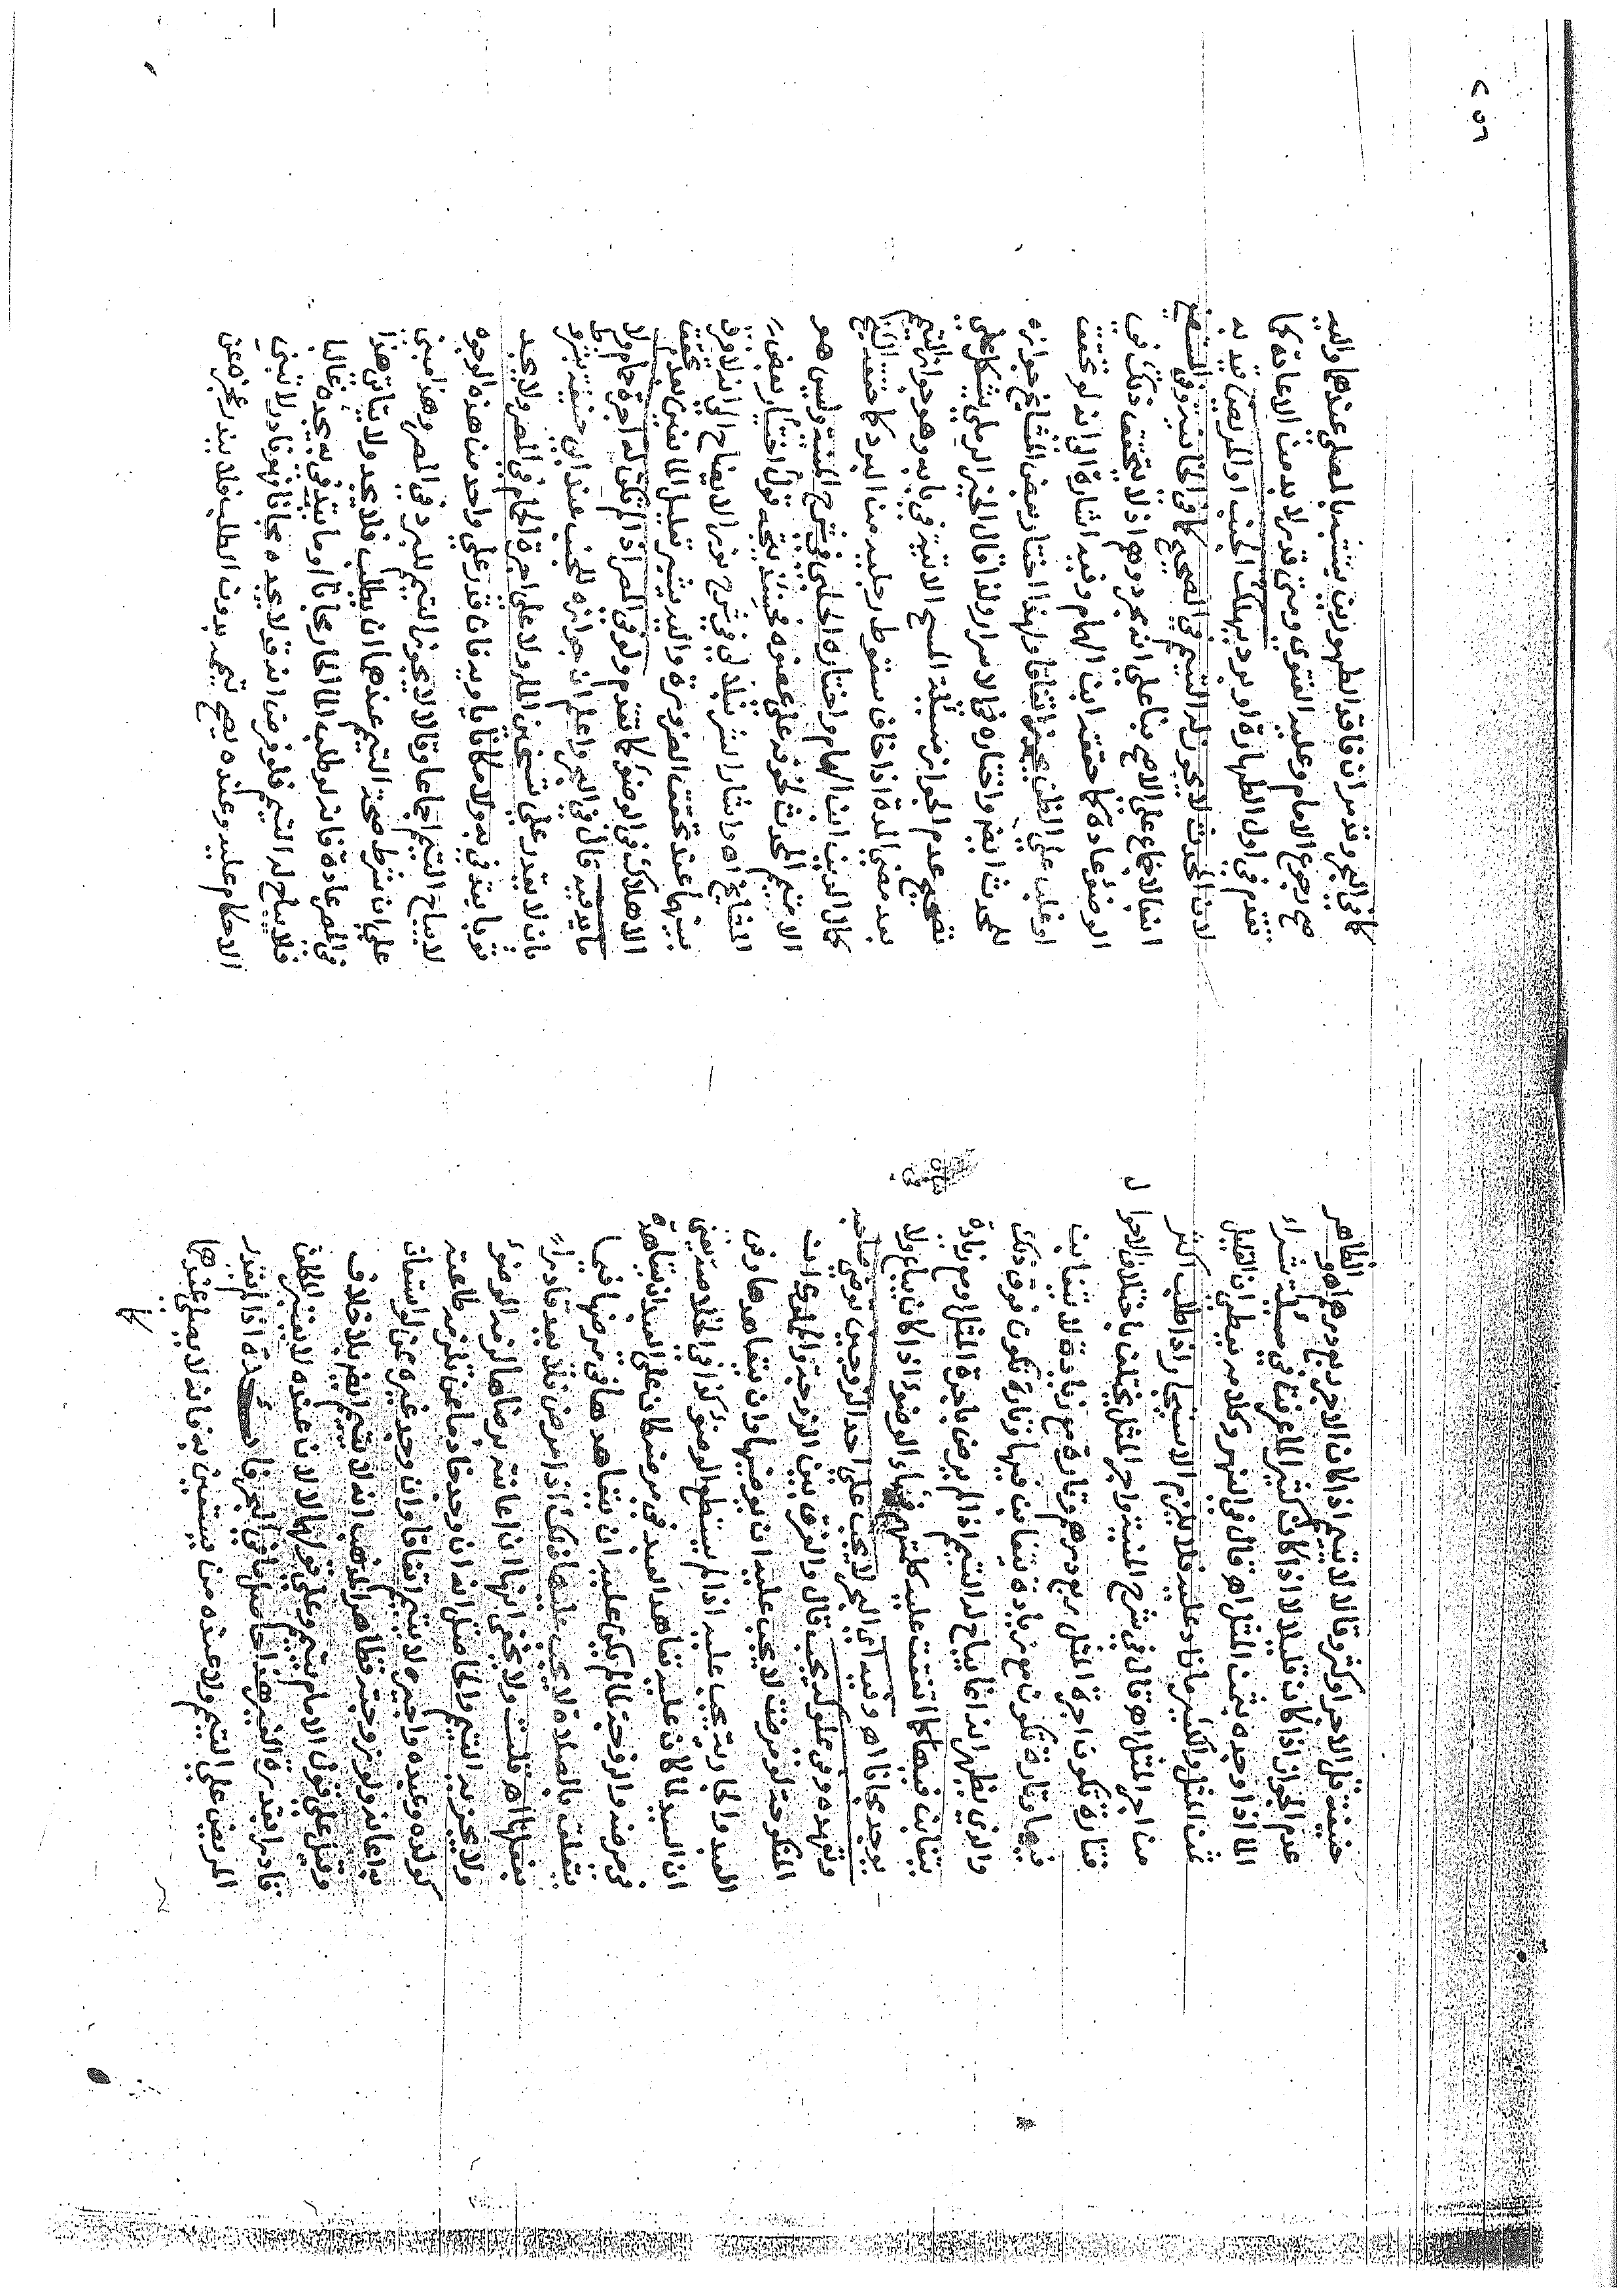 حنيفة قل الاجر او كثر وقالا لا يتيمم اذا كان الاجر ربع درهم اهـ والظاهر
عدم الجواز اذا كان قليلا لا اذا كان كثيرا لما عرفت في مسئلة شراء
الما اذا وجده بثمن المثل اهـ قال في النهر وكلامه يعطي ان القليل
ثمن المثل والكثير ما زاد عليه فلا يلزم الاستيجار اذا طلب اكثر
من اجر المثل اهـ قال في شرح المنية واجر المثل يختلف باختلاف الاحوال
فتارة تكون اجرة المثل ربع درهم وتارة مع زيادة لا يتغابن
فيها وتارة تكون مع زيادة يتغابن فيها وتارة تكون فوق ذلك
والذي يظهر انه انما يباح له التيمم اذا لم يرض باجرة المثل او مع زيادة
يتغابن فيها كما اتفقت عليه كلمتهم في ماء الوضوء اذا كان يباع ولا
يوجد مجانا اهـ وفيه اي البحر لا يجب على احد الزوجين توضي صاحبه
وتعهده وفي مملوكه يجب قال والفرق بين الزوجة والمملوك ان
المنكوحة لو مرضت لا يجب عليه ان يوضيها وان يتعاهدها وفي
العبد والجارية يجب عليه اذا لم يستطع الوضوء كذا في الخلاصة يعني
ان السيد لما كان عليه تعاهد العبد في مرضه كان على العبد ان يتعاهده
في مرضه والزوجة لما لم يكن عليه ان يتعاهدها في مرضها فيما
يتعلق بالصلاة لا يجب عليها ذلك اذا مرض فلا يعد قادراً
بفعلها اهـ قلت ولا يخفى انها ان اعانته برضاها لزمه الوضوء
ولا يجزيه التيمم والحاصل انه ان وجد خادما من تلزمه طاعته
كولده وعبده واجيره لا يتيمم اتفاقا وان وجد غيره ممن لو استعان
به اعانه ولو زوجته فظاهر المذهب انه لا يتيمم ايضا بلا خلاف
وقيل على قول الامام يتيمم وعلى قولهما لا لان عنده لا يعتبر المكلف
قادرا بقدرة الغير هذا حاصل ما في البحر اذا لم يقدر
المريض على التيمم ولا عنده من يستعين به فانه لا يصلي عندهما
٢٥٦
كما في البحر وقدمر ان فاقد الطهورين يتشبه بالمصلي عندهما واليه
صح رجوع الامام وعليه الفتوى ومتى قدر لا بد من الاعادة كما
تقدم في اول الطهارة او برد يهلك الجنب او المريض قيد به
لان المحدث لا يجوز له التيمم في الصحيح كما في الخانية وفي المستصفى
انه بالاجماع على الاصح بناء على انه مجرد وهم اذ لا يتحقق ذلك في
الوضوء عادة كما حققه ابن الهمام وفيه اشارة الى انه لو تحقق
او غلب على الظن يجوز اتفاقا ولهذا اختار بعض المشايخ جوازه
للمحدث ايضا واختاره في الاسرار ولذا قال الخير الرملي يشكل على
تصحيح عدم الجواز مسئلة المسح الاتية في بابه وهو جواز التيمم
بعد مضي المدة اذا خاف سقوط رجليه من البرد كما حققه الشيخ
كمال الدين ابن الهمام واختاره الحلبي في شرح المنية وليس هو
الا تيمم المحدث لخوفه على عضوه فحينئذ يتجه قول اختيار بعض
المشايخ اهـ واشار الشرنبلالي في شرح نور الايضاح الى انه لا فرق
بينهما عند تحقق الضرورة واليه يشير تعليل المانعين بعدم تحقق
الاهلاك في الوضوء كما تقدم ولو في المصر اذا لم تكن له اجرة حمام ولا
ما يدفيه قال في البحر واعلم ان جوازه للجنب عند ابي حنيفة مشروط
بانه لا يقدر على تسخين الماء ولا على اجرة الحمام في المصر ولا يجد
ثوبا يتدفى به ولا مكانا ياويه فان قدر على واحد من هذه الوجوه
لا يباح التيمم اجماعا وقالا لا يجوز التيمم للبرد في المصر وهذا مبني
على ان شرط صحة التيمم عندهما ان يطلب فلا يجد ولا يتاتى هذا
في المصر عادة فانه لو طلب الما الحار مجانا او ما يتدفى به يجده غالبا
فلا يباح له التيمم فلو فرض انه قد لا يجده مجانا فهو نادر لا تبتنى
الاحكام عليه وعنده يصح تيممه بدون الطلب فلا بد